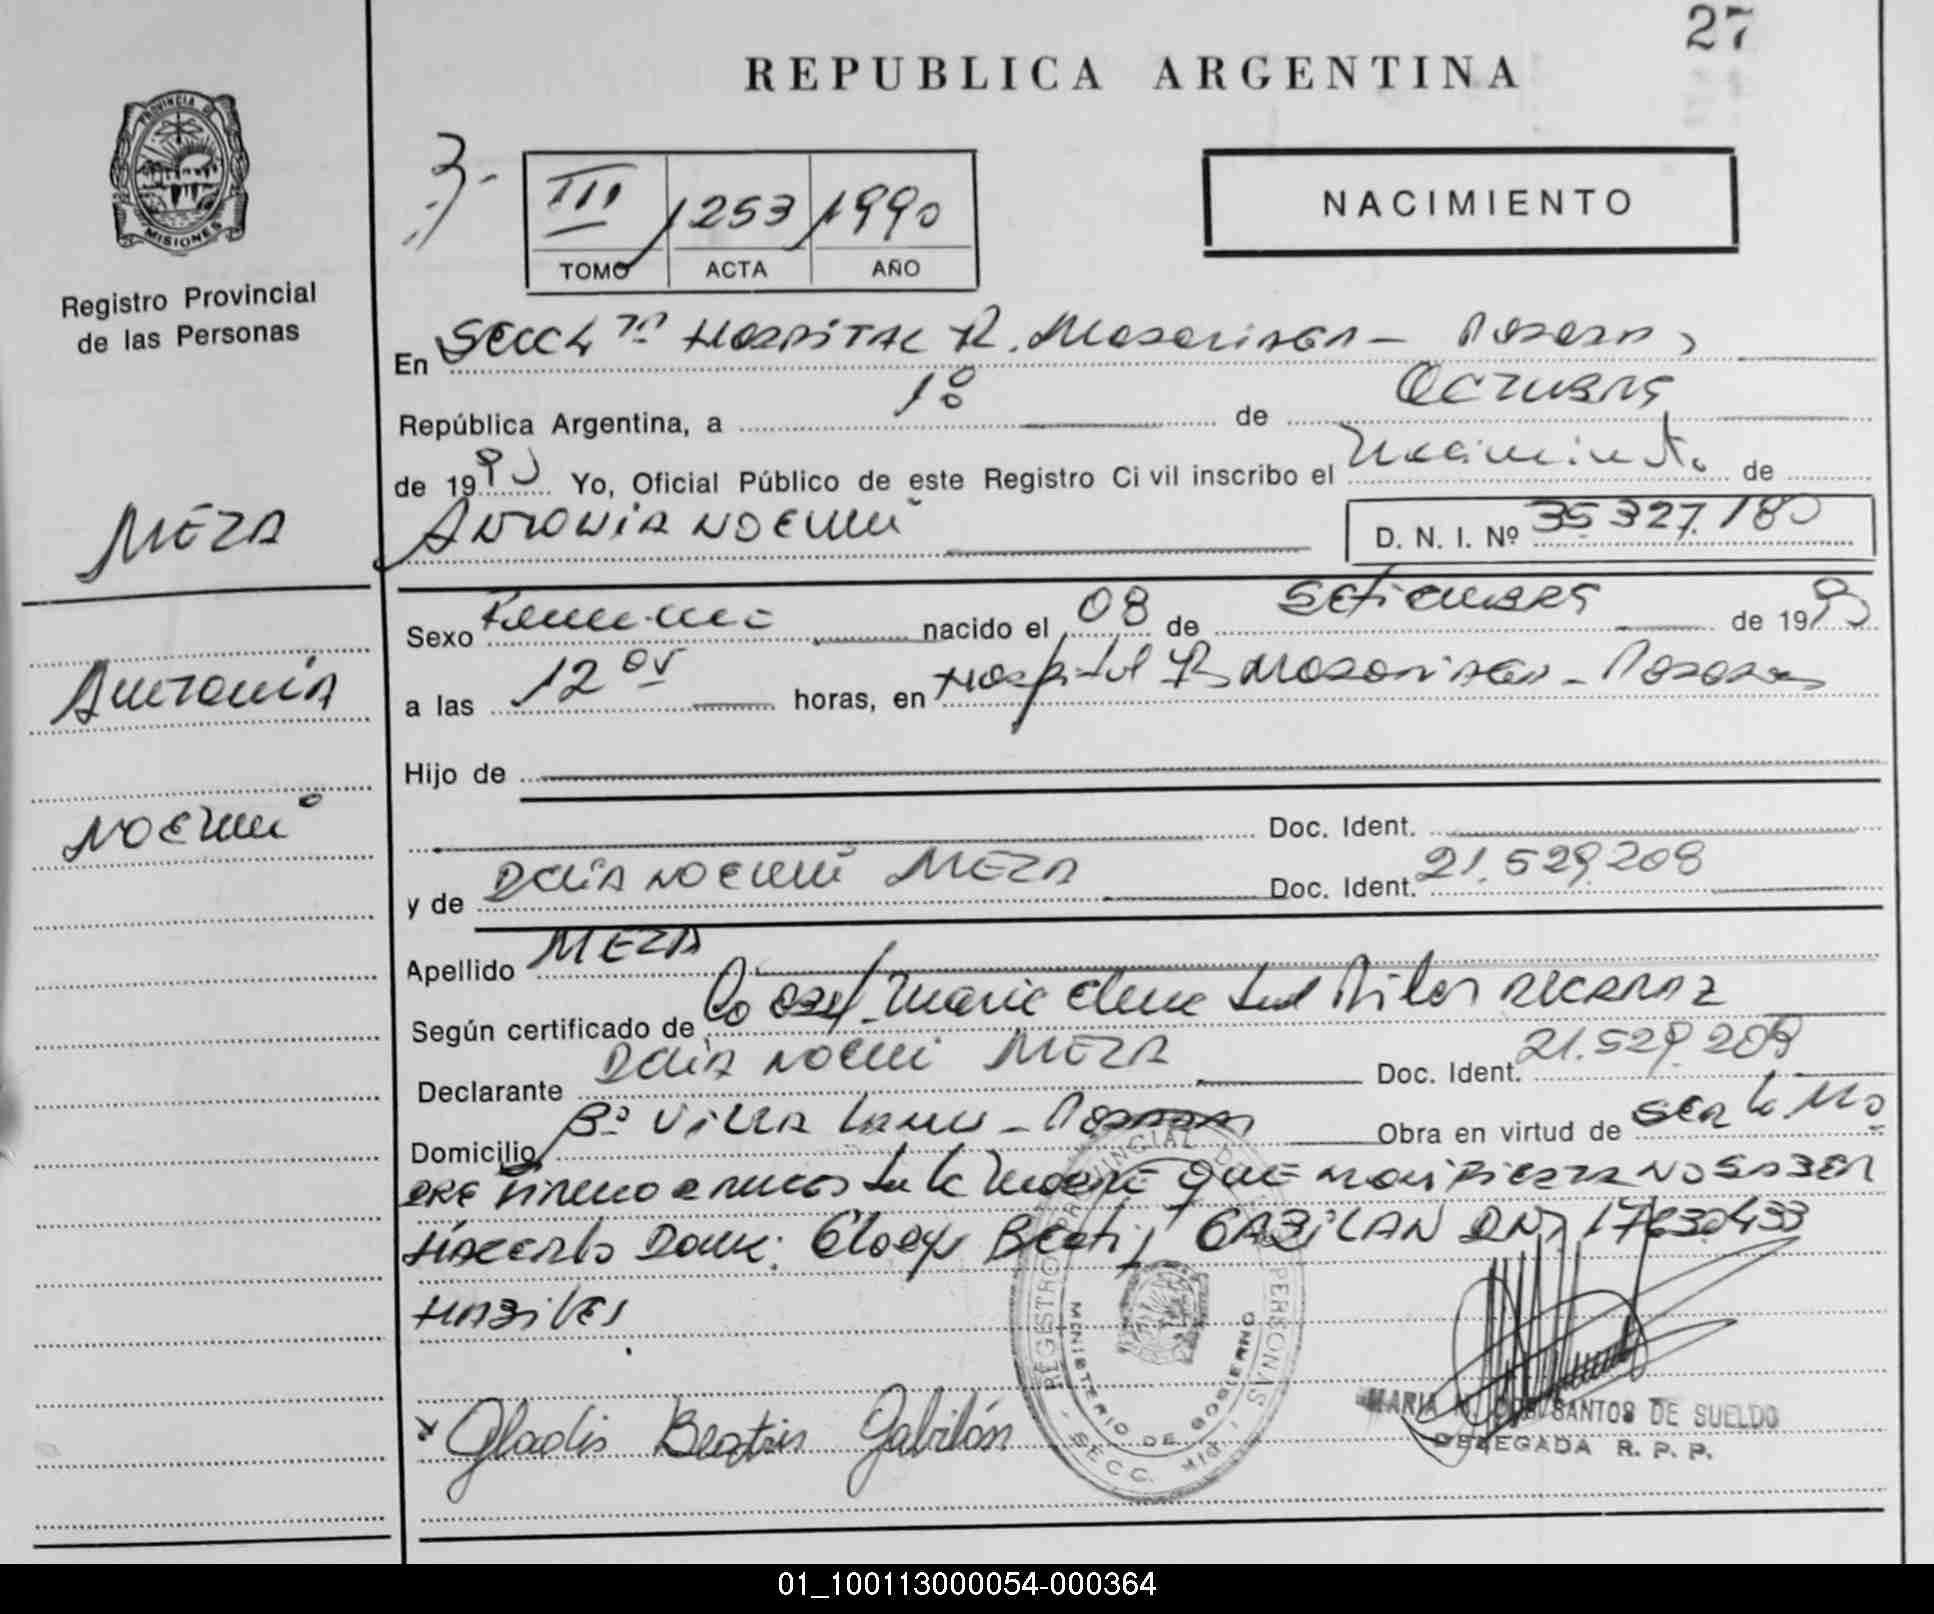 27
REPUBLICA ARGENTINA
PROVINCIA DE
MISIONES
Registro Provincial
de las Personas
3-
III 1253 1990
TOMO ACTA AÑO
NACIMIENTO
En Secc 4 7ª HOSPITAL R. Madariaga - Posadas
República Argentina, a 1º de Octubre
de 1990 Yo, Oficial Público de este Registro Civil inscribo el Nacimiento de
ANTONIA NOEMI D. N. I. Nº 35327.180
MEZA
ANTONIA
NOEMI
Sexo Femenino nacido el 08 de Setiembre de 1990
a las 12 horas, en Hospital R Madariaga - Posadas
Hijo de
Doc. Ident.
y de DELIA NOEMI MEZA Doc. Ident. 21.529.208
Apellido MEZA
Según certificado de Maria Elena del Pilar ALCARAZ
Declarante DELIA NOEMI MEZA Doc. Ident. 21.529.208
Domicilio Bº Villa Lanus - Posadas Obra en virtud de ser la Ma
dre Firmo a ruego de la madre que manifiesta no saber
hacerlo Doña: Beatriz GABILAN DNI 17630433
habiles
REGISTRO PROVINCIAL DE PERSONAS
MINISTERIO DE GOBIERNO
SECC.
Gladis Beatris Gabilán
MARIA SANTOS DE SUELDO
DELEGADA R. P. P.
01_100113000054-000364